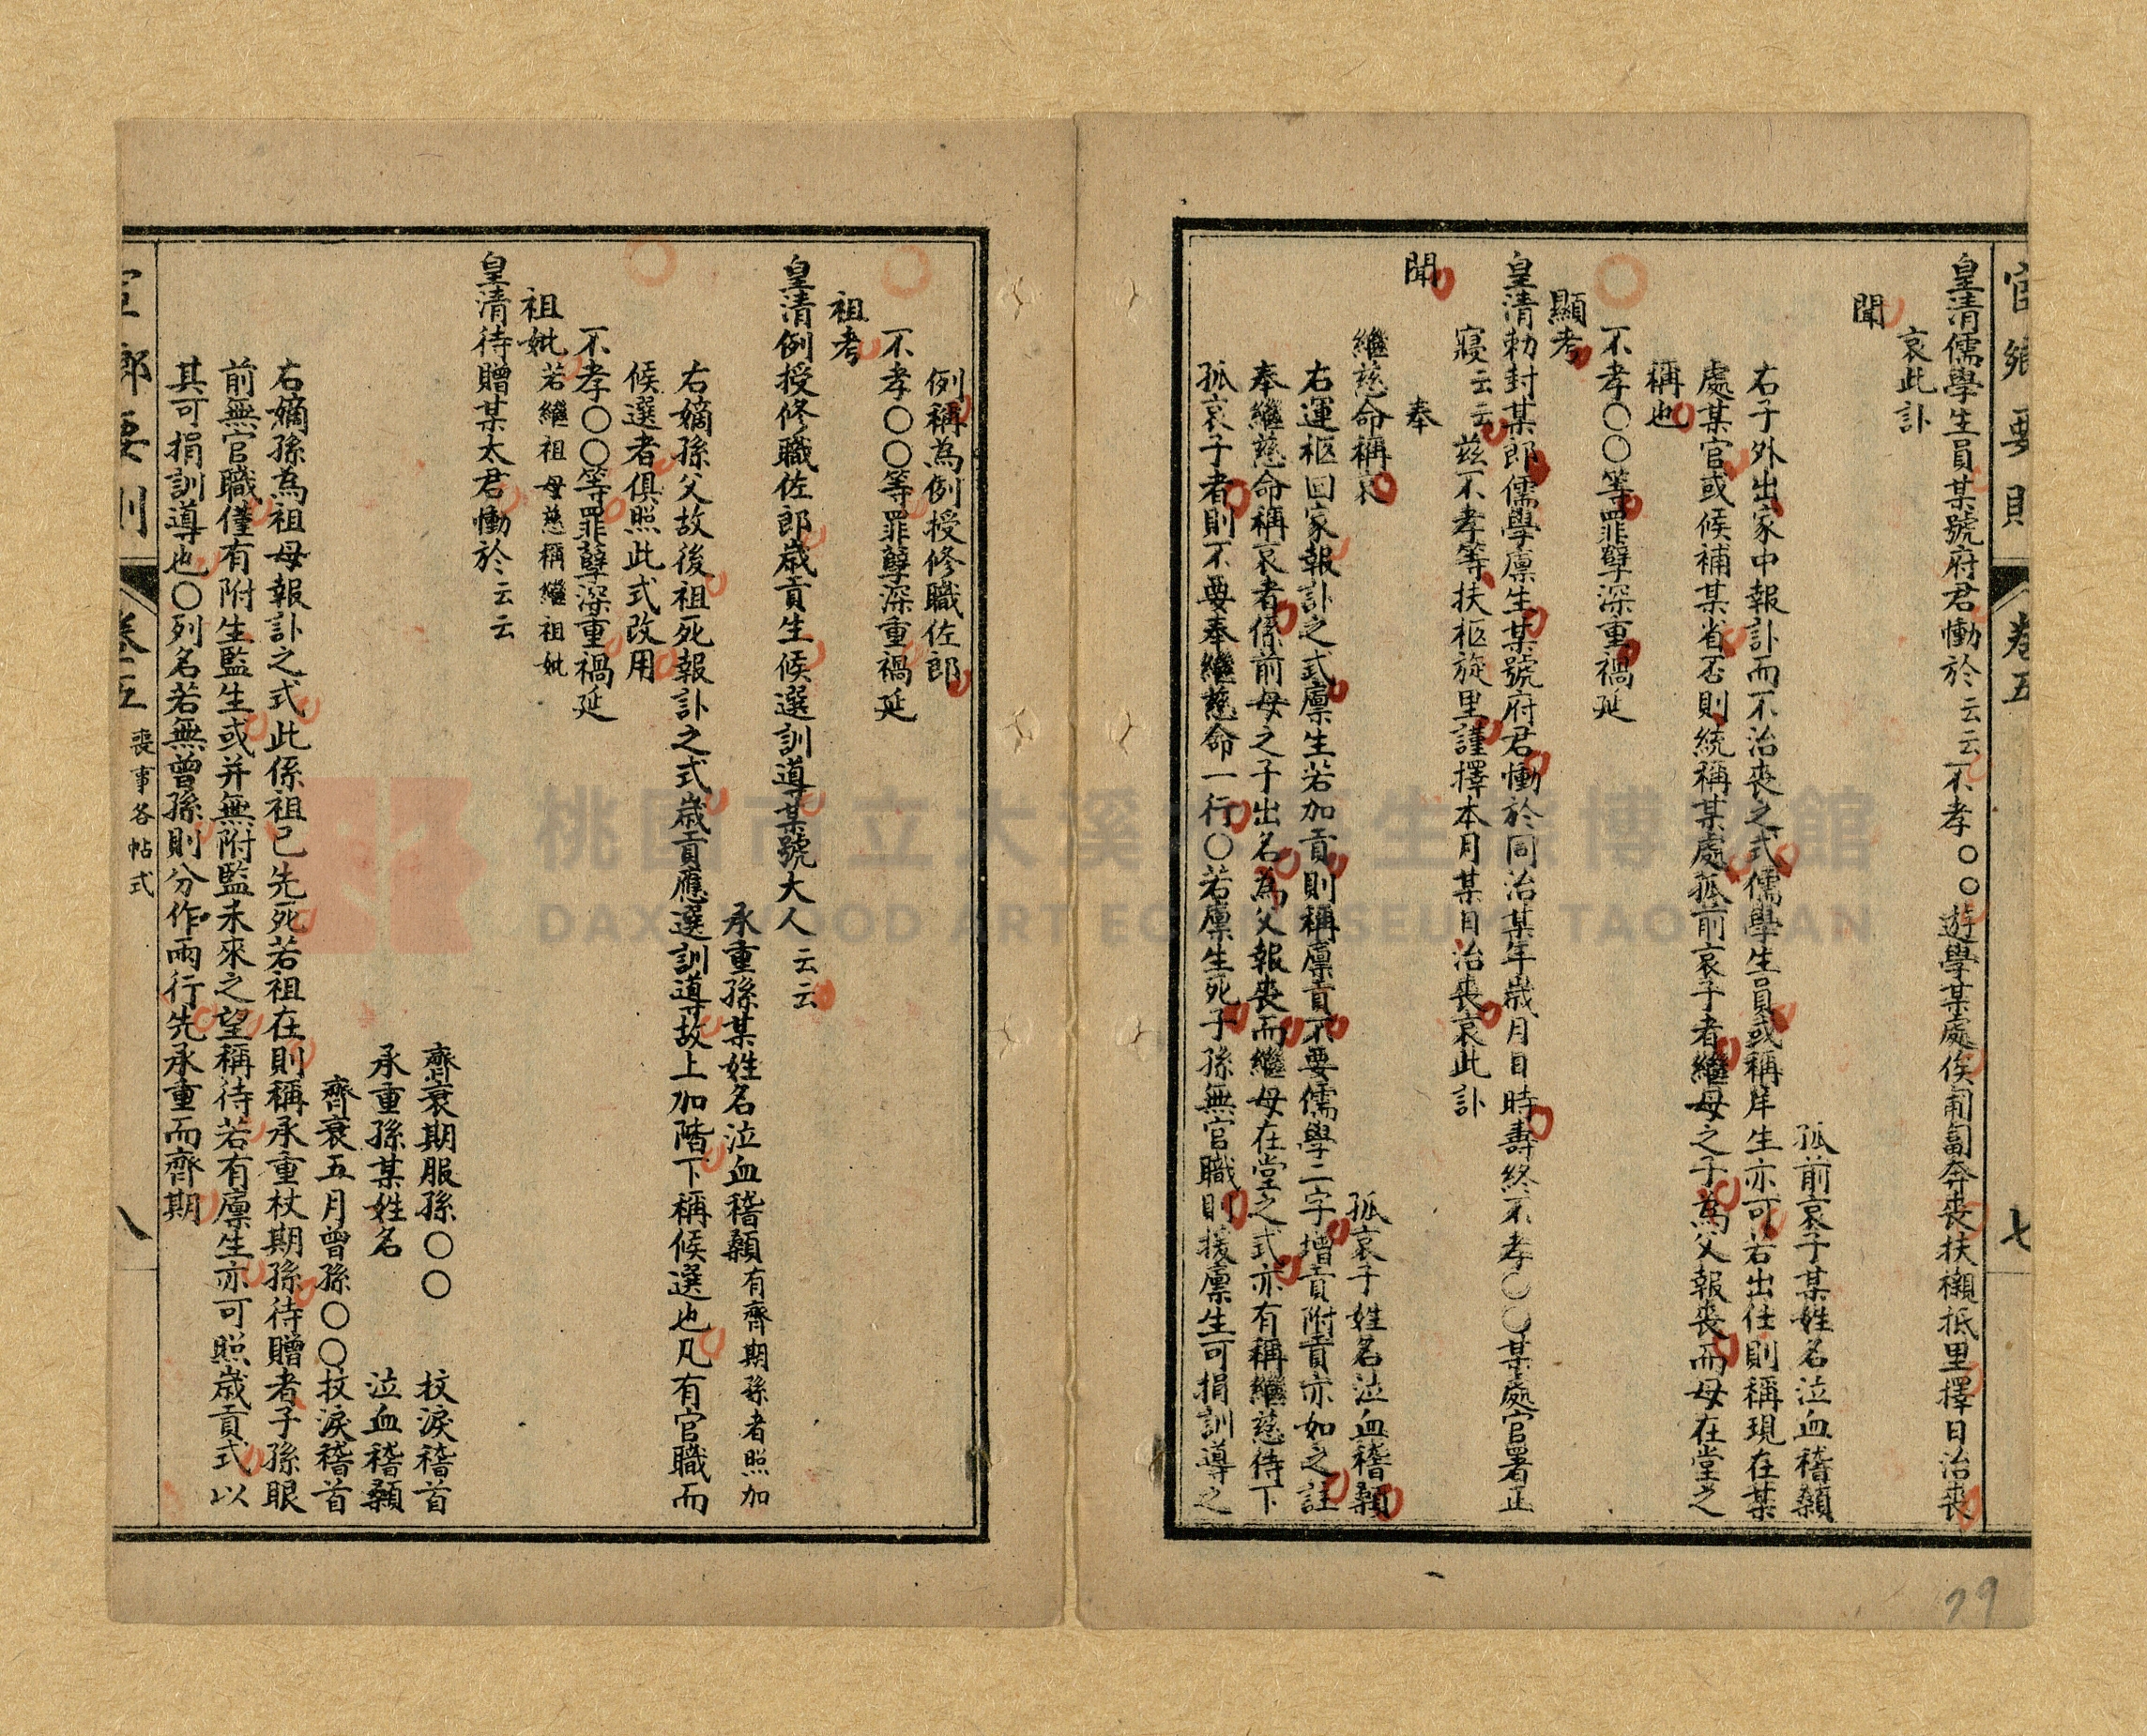 官鄉要則
卷五
七
皇清儒學生員某號府君慟於云云不孝○○遊學某處俟匍匐奔喪扶櫬抵里擇日治喪
哀此訃
聞
孤前哀子某姓名泣血稽顙
右子外出家中報訃而不治喪之式儒學生員或稱庠生亦可若出仕則稱現在某
處某官或候補某省否則統稱某處孤前哀子者繼母之子為父報喪而母在堂之
稱也
不孝○○等罪孽深重禍延
顯考
皇清勅封某郎儒學廩生某號府君慟於同治某年歲月日時壽終不孝○○某處官署正
寢云云兹不孝等扶柩旋里謹擇本月某日治喪哀此訃
聞
奉
繼慈命稱哀
孤哀子姓名泣血稽顙
右運柩回家報訃之式廩生若加貢則稱廩貢不要儒學二字增貢附貢亦如之註
奉繼慈命稱哀者係前母之子出名為父報喪而繼母在堂之式亦有稱繼慈侍下
孤哀子者則不要奉繼慈命一行○若廩生死子孫無官職則援廩生可捐訓導之
例稱為例授修職佐郎
不孝○○等罪孽深重禍延
祖考
皇清例授修職佐郎歲貢生候選訓導某號大人云云
承重孫某姓名泣血稽顙有齊期孫者照加
右嫡孫父故後祖死報訃之式歲貢應選訓導故上加階下稱候選也凡有官職而
候選者俱照此式改用
不孝○○等罪孽深重禍延
祖妣若繼祖母慈稱繼祖妣
皇清待贈某太君慟於云云
齊衰期服孫○○ 抆淚稽首
承重孫某姓名 泣血稽顙
齊衰五月曾孫○○抆淚稽首
右嫡孫為祖母報訃之式此係祖已先死若祖在則稱承重杖期孫待贈者子孫眼
前無官職僅有附生監生或并無附監未來之望稱待若有廩生亦可照歲貢式以
其可捐訓導也○列名若無曾孫則分作兩行先承重而齊期
官鄉要則
卷五
喪事各帖式
八
79
桃園市立大溪木藝生態博物館
DAXI WOOD ART ECOMUSEUM, TAOYUAN